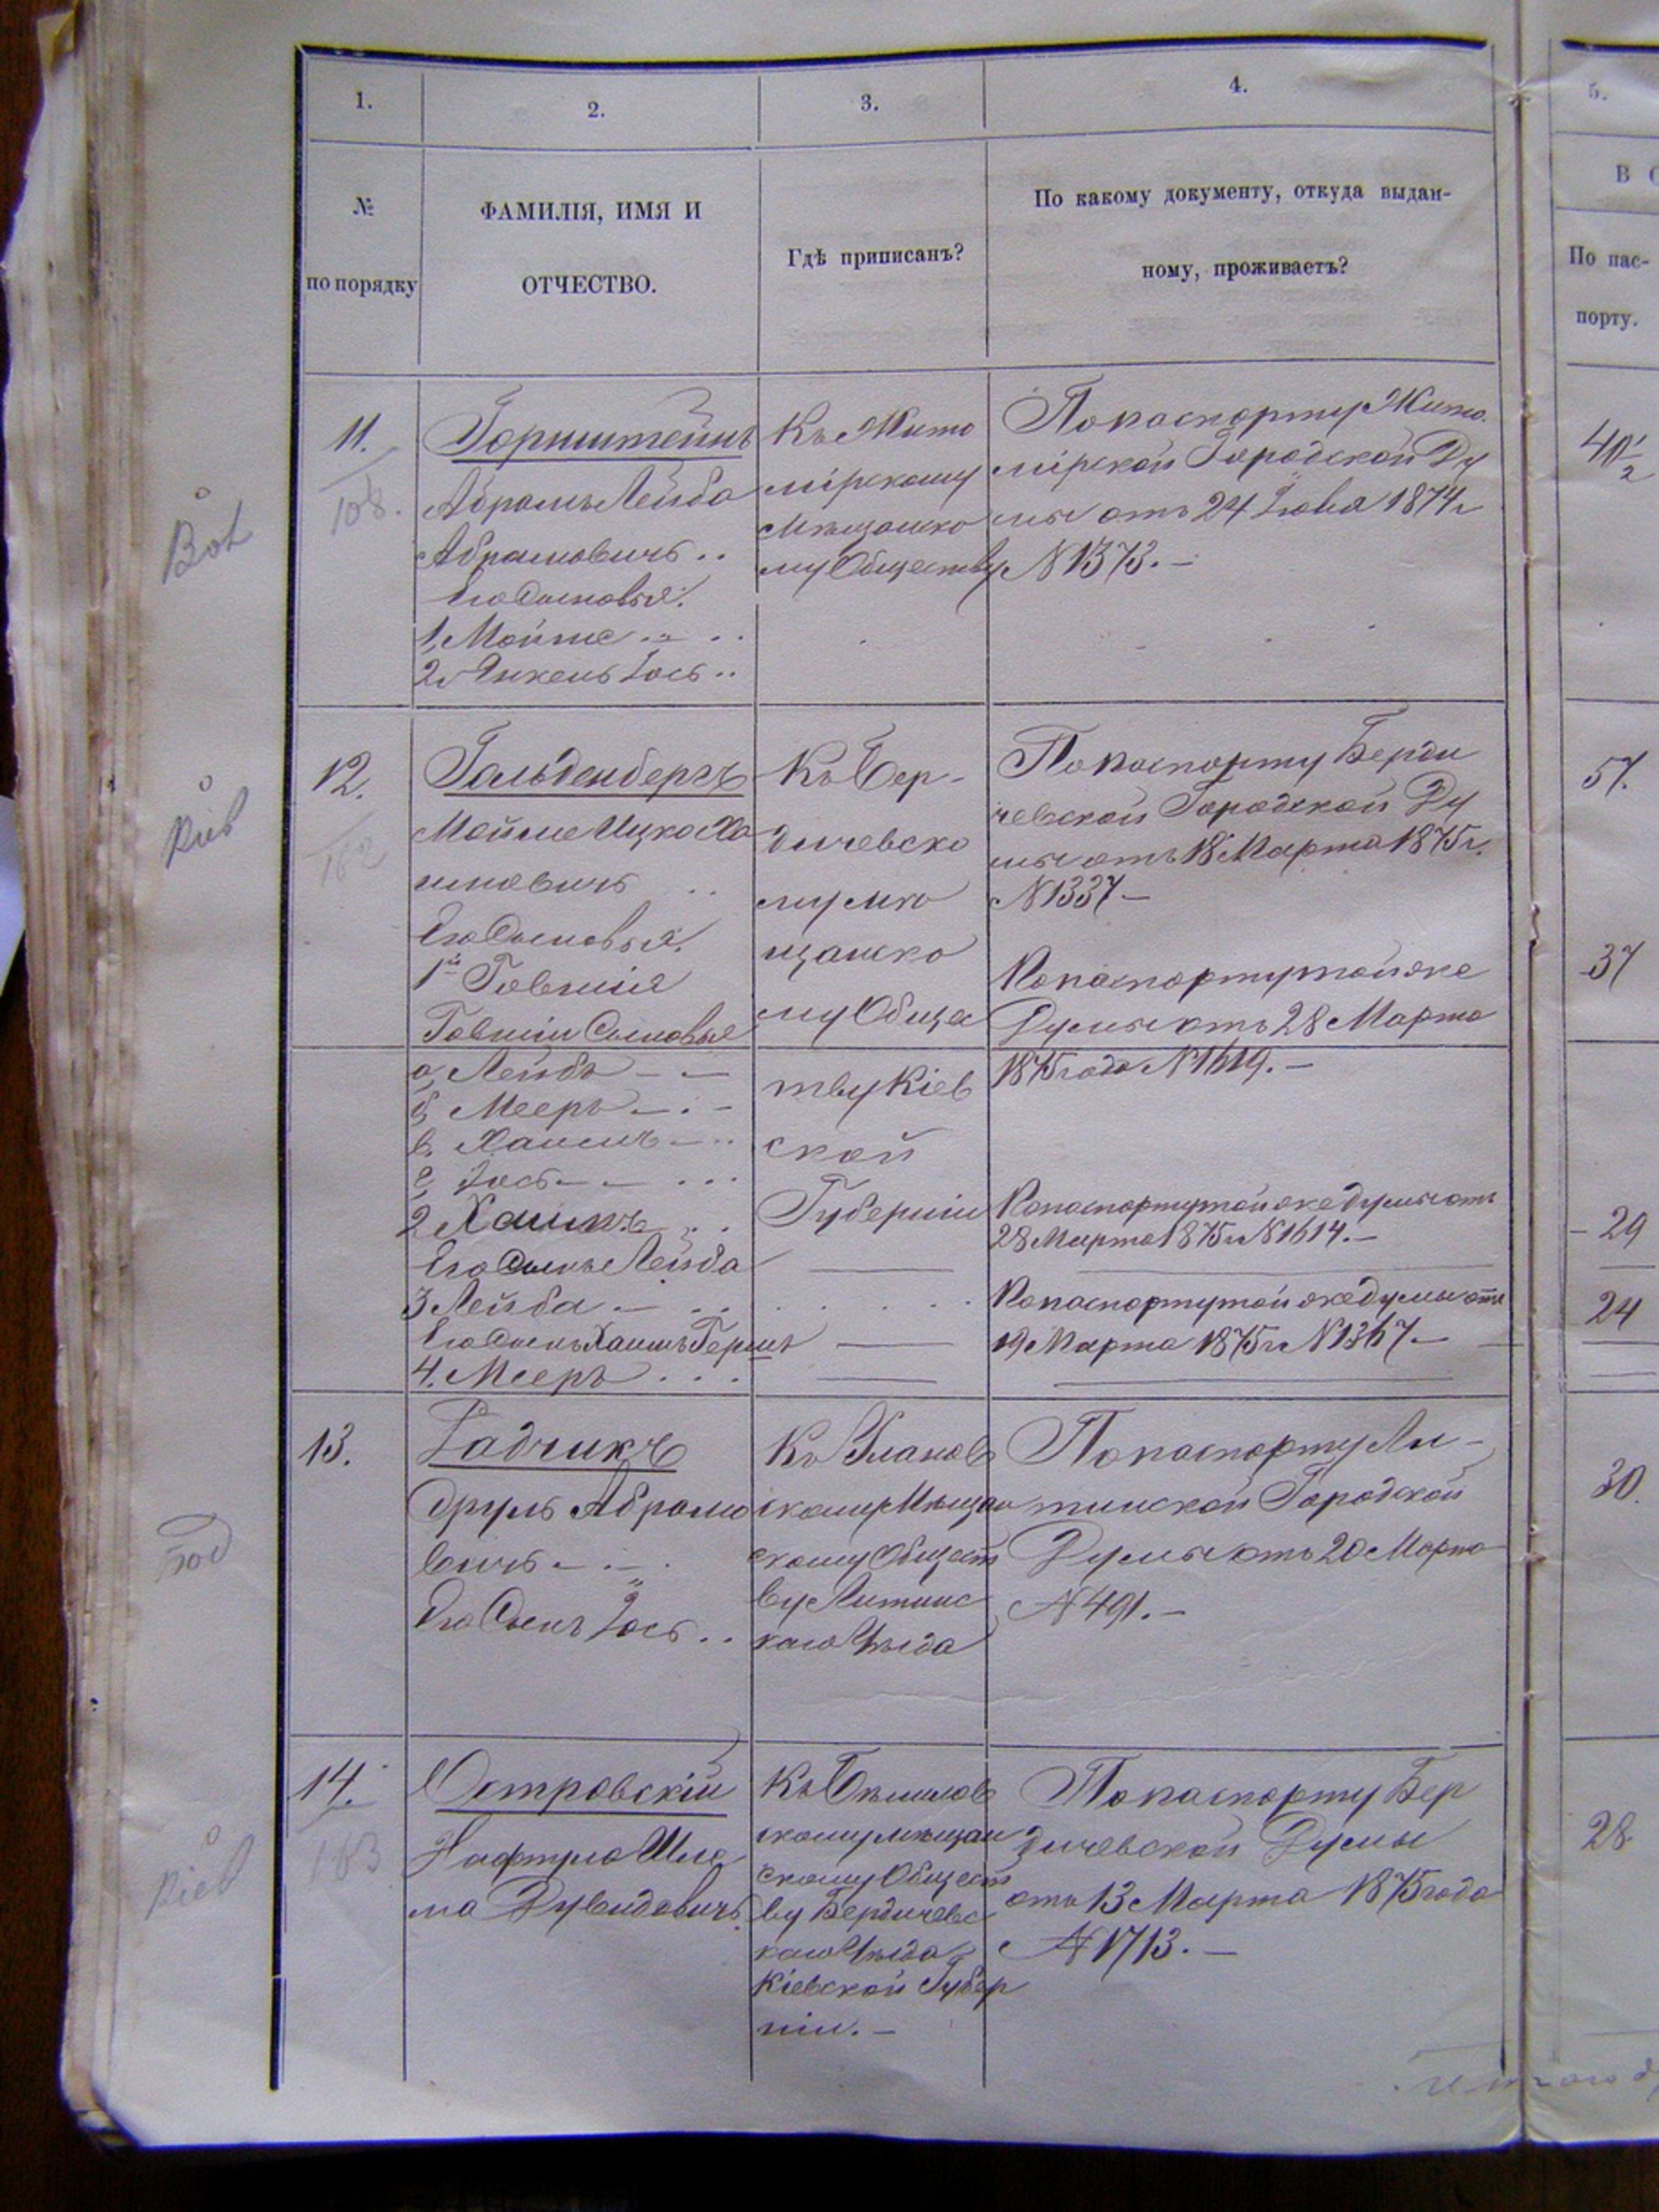 1.
2.
3.
4.
5.
№
по порядку
ФАМИЛІЯ, ИМЯ И
ОТЧЕСТВО.
Гдѣ приписанъ?
По какому документу, откуда выдан-
ному, проживаетъ?
В С
По пас-
порту.
11.
108.
Горнштейнъ
Абрамъ Лейба
Абрамовичъ ..
Его Сыновья:
1, Мойше
2, Янкель Іось ..
Къ Жито
мірскому
Мѣщанско
му Обществу
По паспорту Жито
мірской Городской Ду
мы отъ 24 Іюня 1874 г
№ 1373. –
40 1/2
12.
162
Гольденбергъ
Мойше Ицко Ха
имовичъ ..
Его Сыновья:
1й Говшія
Говшіи Сыновья
а, Лейбъ – –
б, Мееръ – . –
в, Хаимъ – ..
г, Іось – – ...
2 Хаимъ ..
Его Сынъ Лейба
3 Лейба – ..
Его Сынъ Хаимъ Гершъ
4. Мееръ . . .
Къ Бер-
дичевско
му мѣ
щанско
му Общес
тву Кіев
ской
Губерніи
По паспорту Берди
чевской Городской Ду
мы отъ 18 Марта 1875 г.
№ 1337 –
По паспорту той же
Думы отъ 28 Марта
1875 года № 1619. –
По паспорту той же Думы отъ
28 Марта 1875 г № 1614. –
По паспорту той же думы отъ
19 Марта 1875 г № 1367 –
57.
37
29
24
13.
Радчикъ
Сруль Абрамо
вичъ – . – .
Его Сынъ Іось ..
Къ Уланов
скому Мѣщан
скому Общест
ву Литинс
каго Уѣзда
По паспорту Ли-
тинской Городской
Думы отъ 20 Марта
№ 491. –
30.
14.
163
Островскій
Нафтула Шле
ма Дувидовичъ
Къ Бѣлилов
скому мѣщан
скому Общест
ву Бердичевс
каго Уѣзда
Кіевской Губер
ніи. –
По паспорту Бер
дичевской Думы
отъ 13 Марта 1875 года
№ 1713. –
28.
Вол
Кіев
Под
Кіев